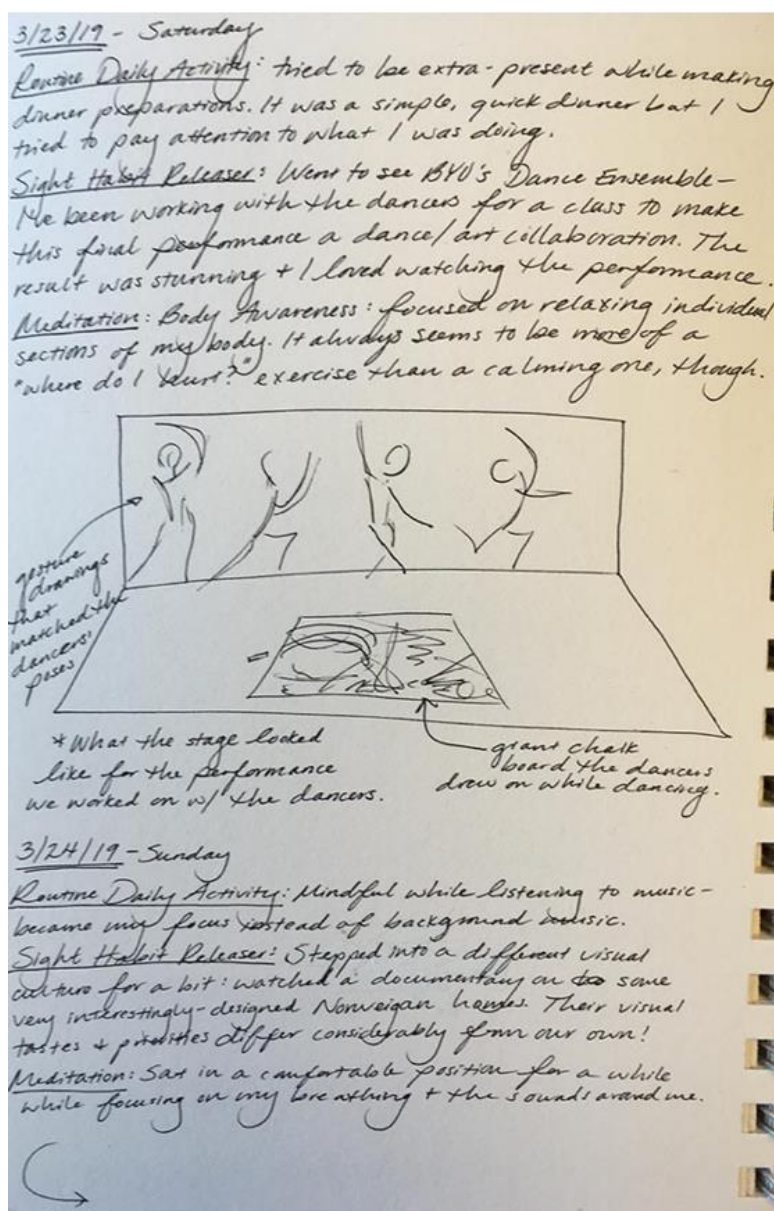 3/23/19 - Saturday
Routine Daily Activity: tried to be extra-present while making
dinner preparations. It was a simple, quick dinner but I
tried to pay attention to what I was doing.
Sight Habit Releaser: Went to see BYU's Dance Ensemble-
I've been working with the dancers for a class to make
this final performance a dance/art collaboration. The
result was stunning + I loved watching the performance.
Meditation: Body Awareness: focused on relaxing individual
sections of my body. It always seems to be more of a
"where do I hurt?" exercise than a calming one, though.
gesture
drawings
that
matched the
dancers'
poses
*What the stage looked
like for the performance
we worked on w/ the dancers.
giant chalk
board the dancers
drew on while dancing.
3/24/19 - Sunday
Routine Daily Activity: Mindful while listening to music-
became my focus instead of background music.
Sight Habit Releaser: Stepped into a different visual
culture for a bit: watched a documentary on some
very interestingly-designed Norweigan homes. Their visual
tastes + priorities differ considerably from our own!
Meditation: Sat in a comfortable position for a while
while focusing on my breathing + the sounds around me.